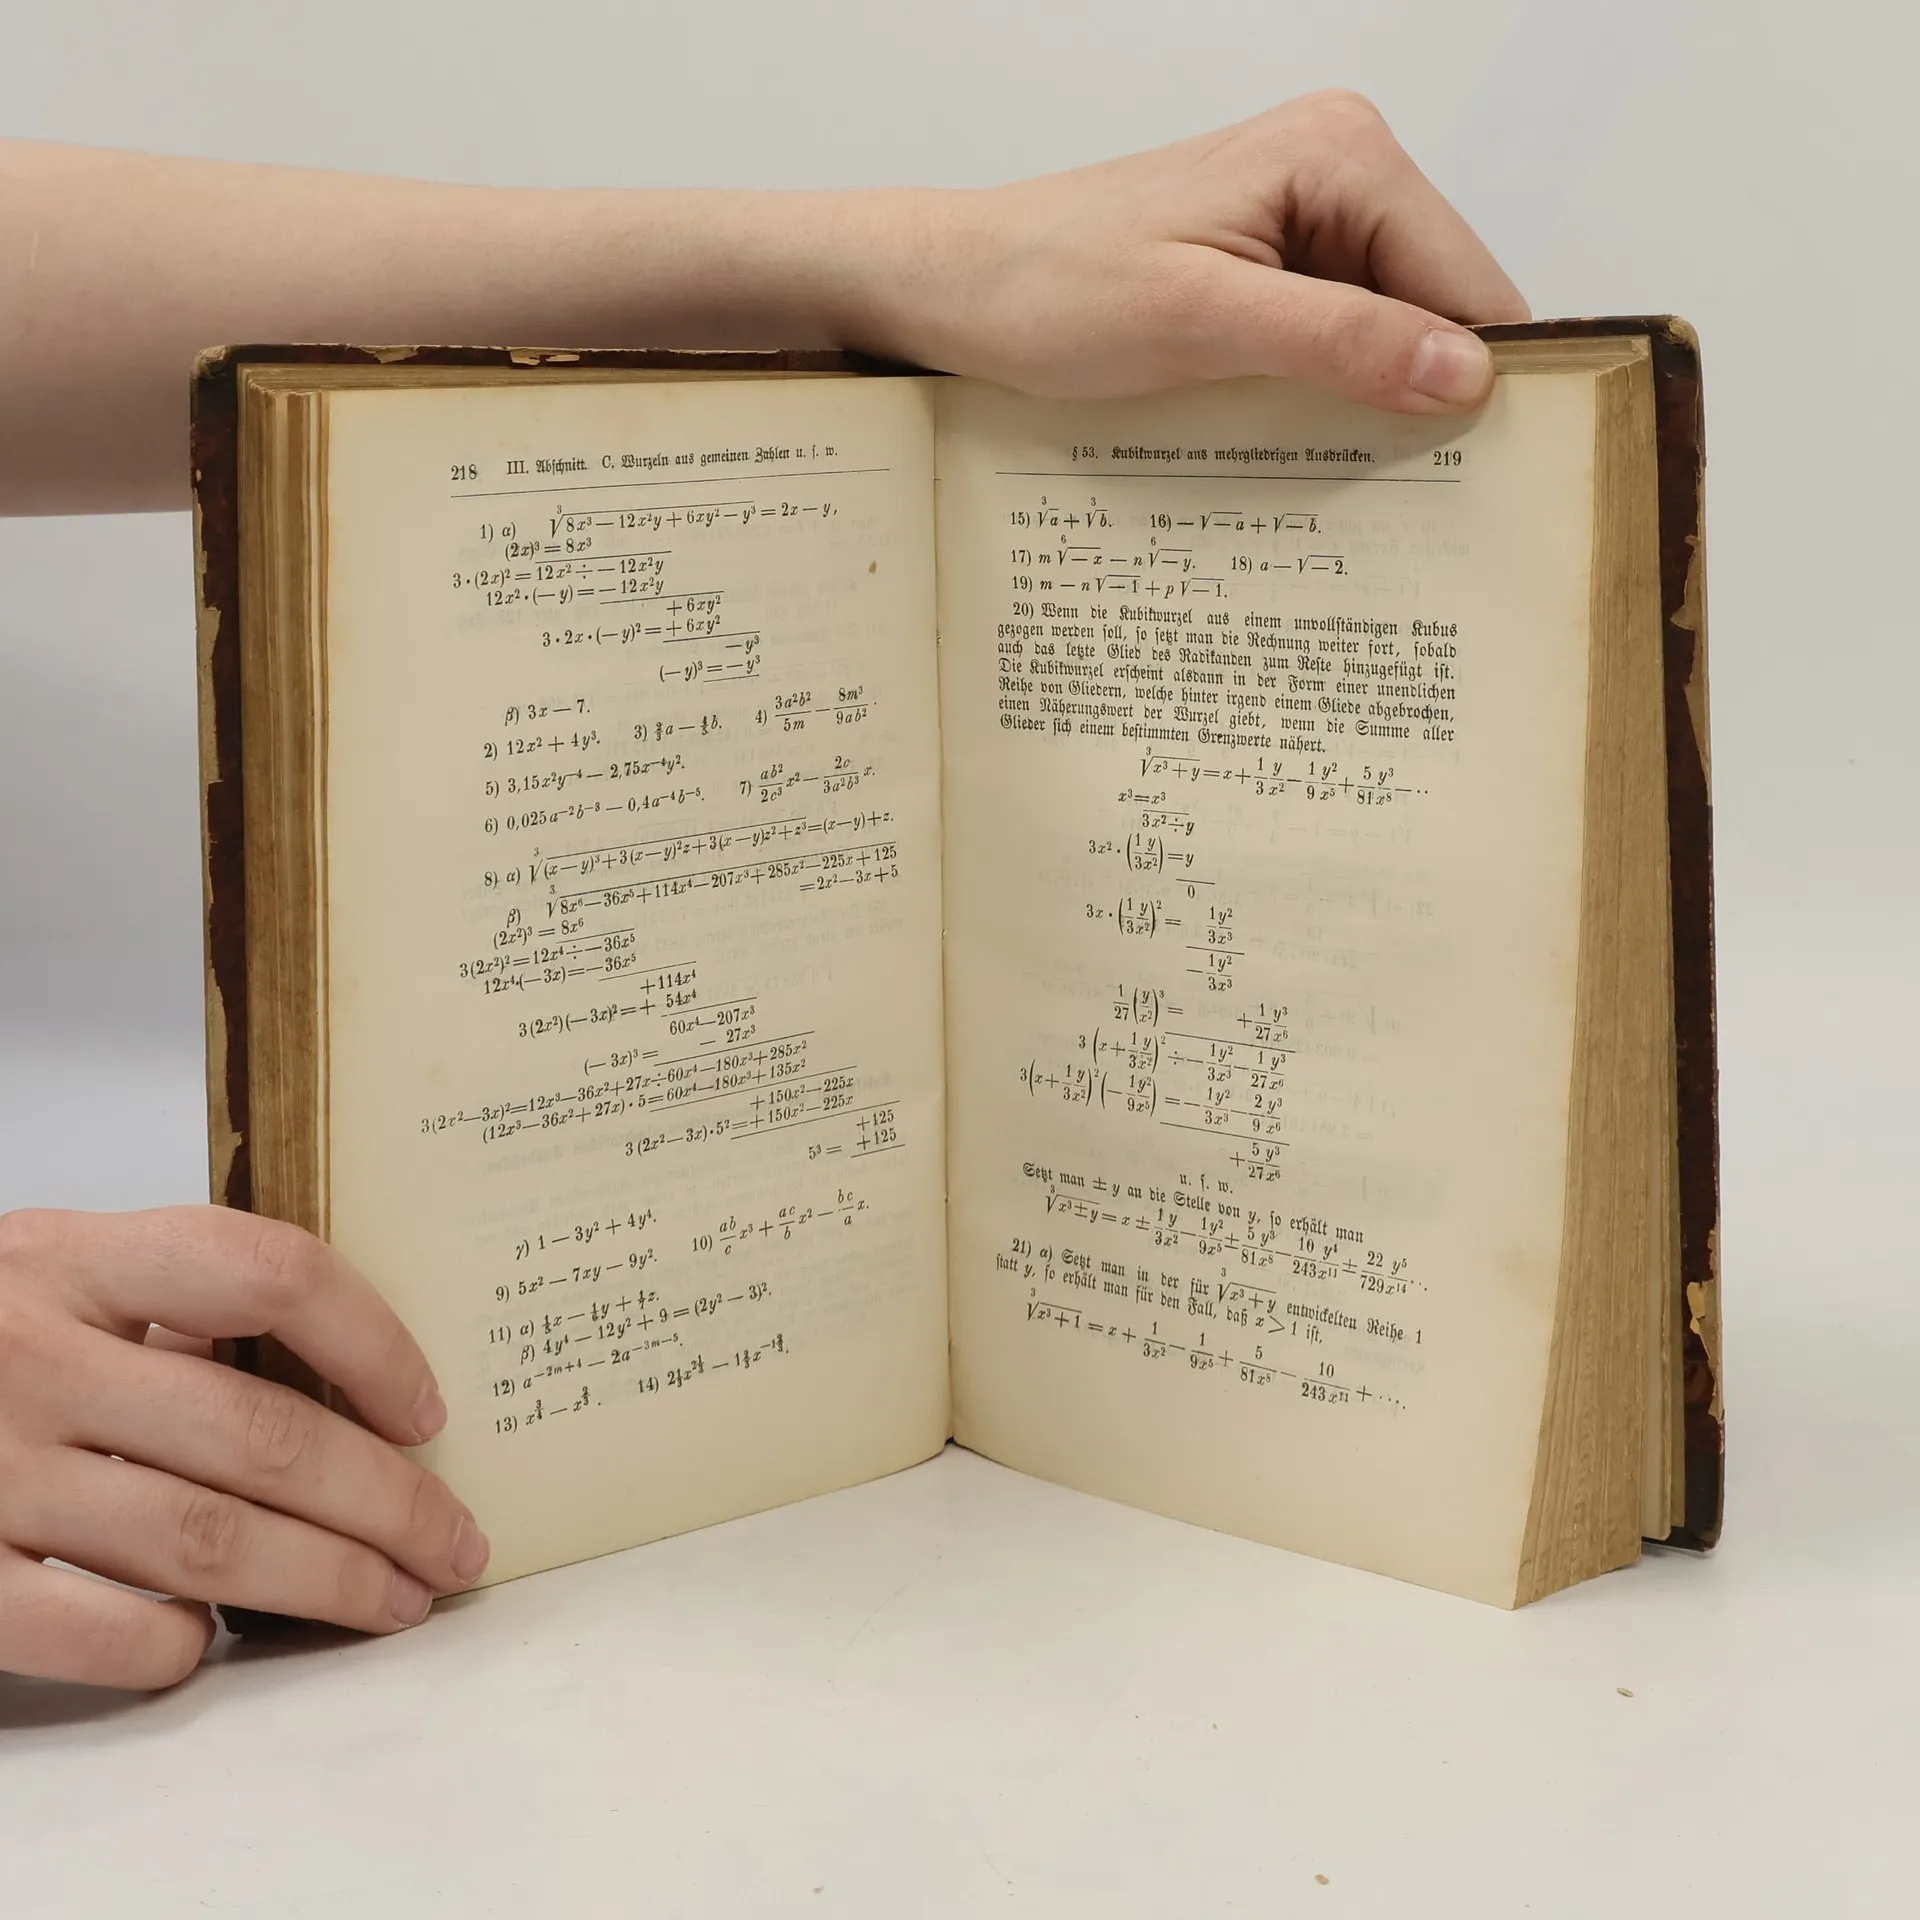 218 III. Abschnitt. C. Wurzeln aus gemeinen Zahlen u. s. w.
1) α) ∛(8x³ — 12x²y + 6xy² — y³) = 2x — y,
(2x)³ = 8x³
3·(2x)² = 12x² ÷ — 12x²y
12x²·(— y) = — 12x²y
+ 6xy²
3·2x·(— y)² = + 6xy²
— y³
(— y)³ = — y³
β) 3x — 7.
2) 12x² + 4y³. 3) ⅔a — ⅘b. 4) 3a²b²/5m — 8m³/9ab².
5) 3,15x²y⁻⁴ — 2,75x⁻⁴y².
6) 0,025a⁻²b⁻⁸ — 0,4a⁻⁴b⁻⁵. 7) ab²/2c³ x² — 2c/3a²b³ x.
8) α) ∛((x—y)³+3(x—y)²z+3(x—y)z²+z³)=(x—y)+z.
β) ∛(8x⁶—36x⁵+114x⁴—207x³+285x²—225x+125)
=2x²—3x+5
(2x²)³ = 8x⁶
3(2x²)²=12x⁴ ÷ —36x⁵
12x⁴·(—3x)=—36x⁵
+114x⁴
3(2x²)(—3x)²=+ 54x⁴
60x⁴—207x³
(—3x)³ = — 27x³
3(2x²—3x)²=12x³—36x²+27x÷60x⁴—180x³+285x²
(12x³—36x²+27x)·5=60x⁴—180x³+135x²
+150x²—225x
3(2x²—3x)·5²=+150x²—225x
+125
5³ = +125
γ) 1 — 3y² + 4y⁴.
9) 5x² — 7xy — 9y². 10) ab/c x³ + ac/b x² — bc/a x.
11) α) x — y + z.
β) 4y⁴ — 12y² + 9 = (2y² — 3)².
12) a^(—2m+4) — 2a^(—3m—5).
13) x^(3/4) — x^(2/3). 14)
§ 53. Kubikwurzel aus mehrgliedrigen Ausdrücken. 219
15) ∛a + ∛b. 16) — √(—a) + √(—b).
17) m ⁶√(—x) — n ⁶√(—y). 18) a — √(—2).
19) m — n√(—1) + p√(—1).
20) Wenn die Kubikwurzel aus einem unvollständigen Kubus
gezogen werden soll, so setzt man die Rechnung weiter fort, sobald
auch das letzte Glied des Radikanden zum Reste hinzugefügt ist.
Die Kubikwurzel erscheint alsdann in der Form einer unendlichen
Reihe von Gliedern, welche hinter irgend einem Gliede abgebrochen,
einen Näherungswert der Wurzel giebt, wenn die Summe aller
Glieder sich einem bestimmten Grenzwerte nähert.
∛(x³+y) = x + 1/3 y/x² — 1/9 y²/x⁵ + 5/81 y³/x⁸ — ..
x³=x³
3x² ÷ y
3x²·(1/3 y/x²) = y
0
3x·(1/3 y/x²)² = 1/3 y²/x³
— 1/3 y²/x³
1/27 (y/x²)³ = + 1/27 y³/x⁶
3(x+1/3 y/x²)² ÷ — 1/3 y²/x³ — 1/27 y³/x⁶
3(x+1/3 y/x²)²(— 1/9 y²/x⁵) = — 1/3 y²/x³ — 2/9 y³/x⁶
+ 5/27 y³/x⁶
u. s. w.
Setzt man ± y an die Stelle von y, so erhält man
∛(x³±y) = x ± 1/3 y/x² — 1/9 y²/x⁵ ± 5/81 y³/x⁸ — 10/243 y⁴/x¹¹ ± 22/729 y⁵/x¹⁴ ..
21) α) Setzt man in der für ∛(x³+y) entwickelten Reihe 1
statt y, so erhält man für den Fall, daß x > 1 ist,
∛(x³+1) = x + 1/3x² — 1/9x⁵ + 5/81x⁸ — 10/243x¹¹ + ....